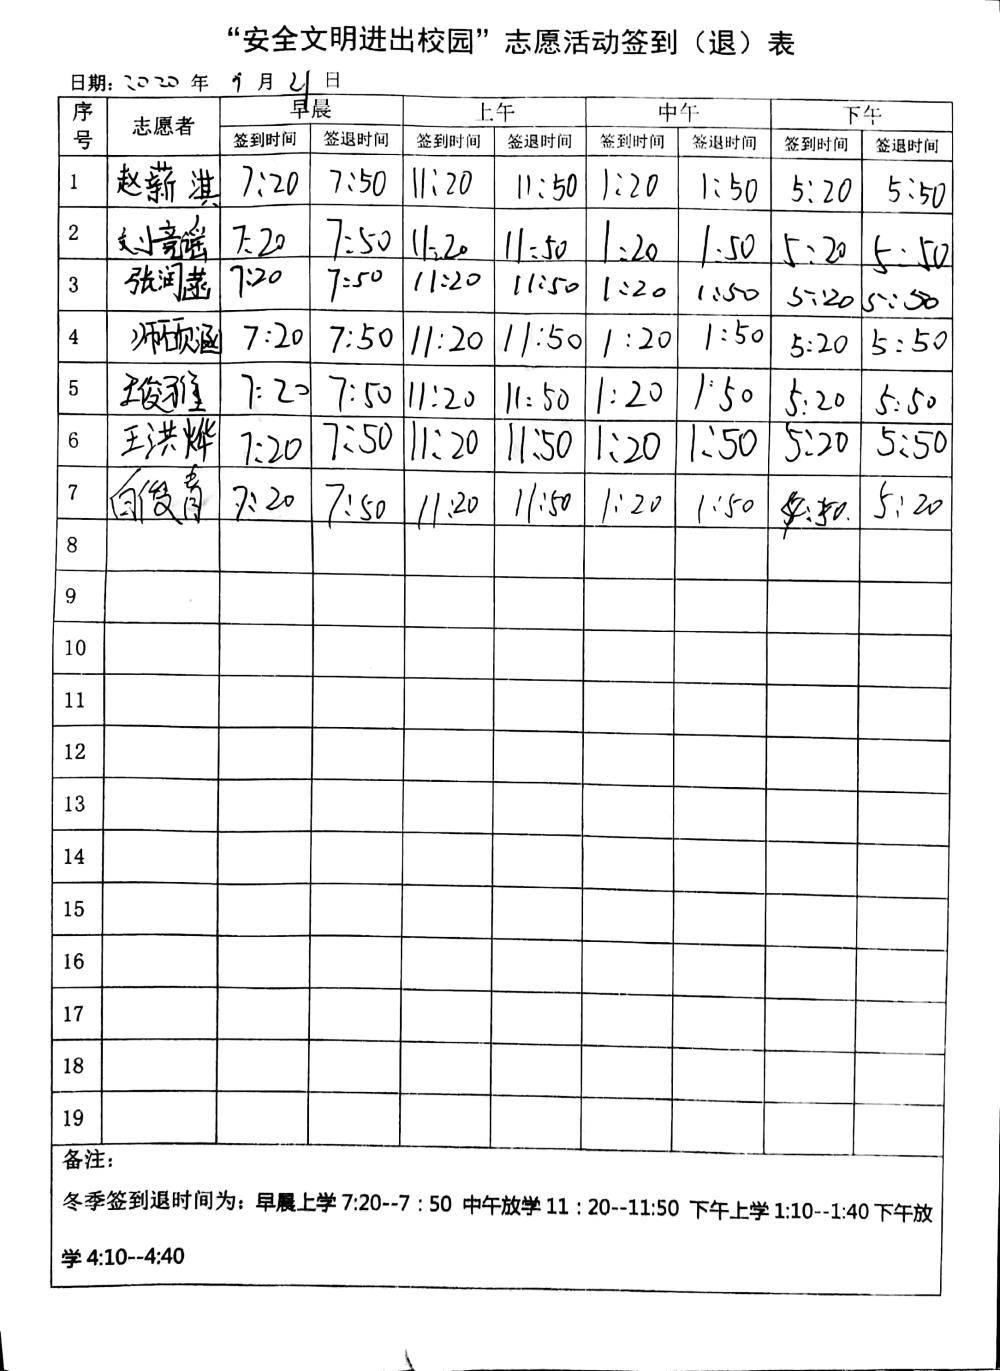 “安全文明进出校园”志愿活动签到（退）表
日期：2020 年 9 月 21 日
序号 志愿者 早晨 上午 中午 下午
签到时间 签退时间 签到时间 签退时间 签到时间 签退时间 签到时间 签退时间
1 赵薪淇 7:20 7:50 11:20 11:50 1:20 1:50 5:20 5:50
2 刘亮瑶 7:20 7:50 11:20 11:50 1:20 1:50 5:20 5:50
3 张润菡 7:20 7:50 11:20 11:50 1:20 1:50 5:20 5:50
4 师硕涵 7:20 7:50 11:20 11:50 1:20 1:50 5:20 5:50
5 王俊雅 7:20 7:50 11:20 11:50 1:20 1:50 5:20 5:50
6 王洪烨 7:20 7:50 11:20 11:50 1:20 1:50 5:20 5:50
7 白俊青 7:20 7:50 11:20 11:50 1:20 1:50 5:50. 5:20
8
9
10
11
12
13
14
15
16
17
18
19
备注：
冬季签到退时间为：早晨上学 7:20--7：50 中午放学 11：20--11:50 下午上学 1:10--1:40 下午放
学 4:10--4:40